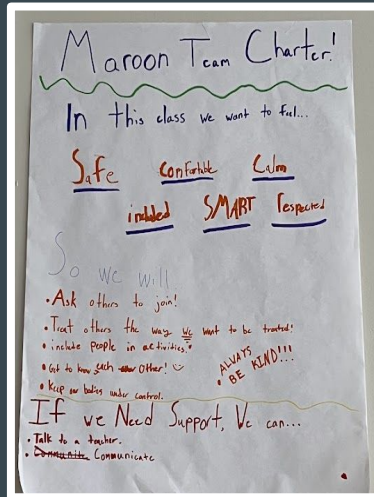 Maroon Team Charter!
In this class we want to feel...
Safe Comfortable Calm
included SMART respected
So we will
• Ask others to join!
• Treat others the way we want to be treated!
• include people in activities.
• Get to know each other! ☺
• Keep our bodies under control.
ALWAYS
• BE KIND!!!
If we Need Support, We can...
• Talk to a teacher.
• Communicate